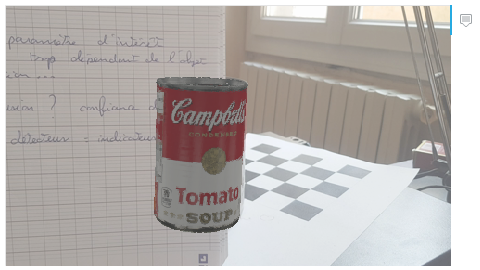 paramètre d'intérêt
trop dépendant de l'objet
? confiance
détecteur = indicateur
Campbell's
CONDENSED
Tomato
SOUP